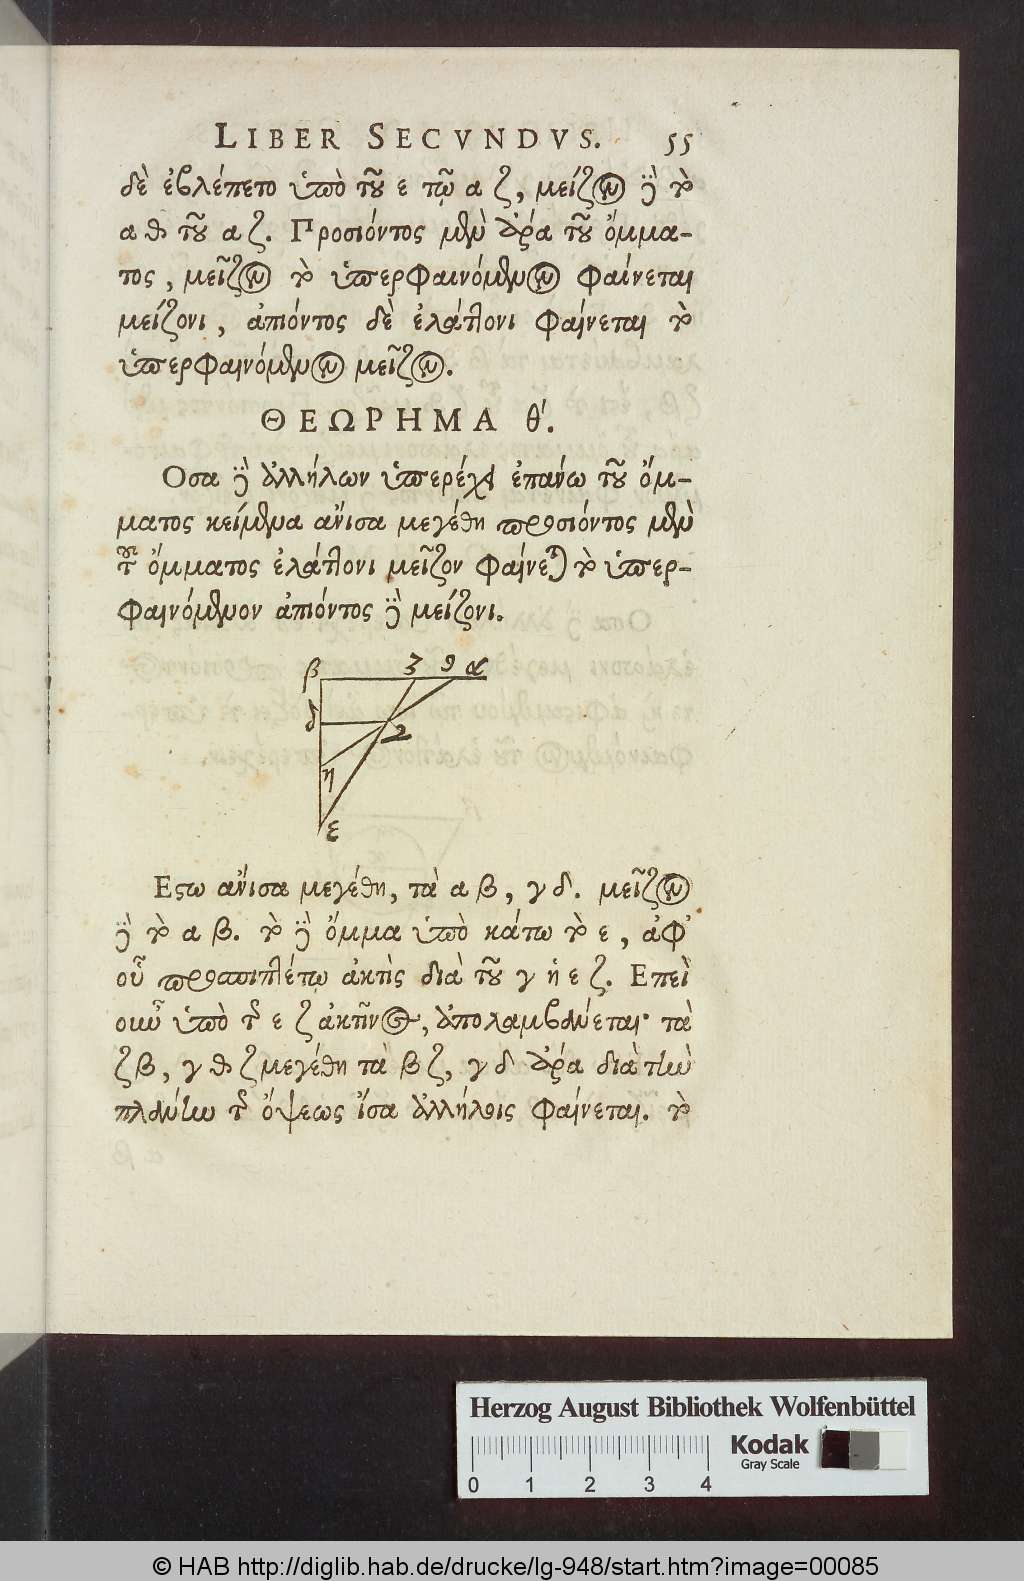 LIBER SECVNDVS. 55
δὲ ἐβλέπετο ὑπὸ τοῦ ε τῷ α ζ, μείζων δὲ τὸ
α θ τοῦ α ζ. Προσιόντος μὲν ἄρα τοῦ ὄμμα-
τος, μεῖζον τὸ ὑπερφαινόμενον φαίνεται
μείζονι, ἀπιόντος δὲ ἐλάττονι φαίνεται τὸ
ὑπερφαινόμενον μεῖζον.
ΘΕΩΡΗΜΑ θ΄.
Οσα δὲ ἀλλήλων ὑπερέχει ἐπάνω τοῦ ὄμ-
ματος κείμενα ἄνισα μεγέθη προσιόντος μὲν
τοῦ ὄμματος ἐλάττονι μεῖζον φαίνεται τὸ ὑπερ-
φαινόμενον ἀπιόντος δὲ μείζονι.
β ζ θ α
δ
γ
η
ε
Εστω ἄνισα μεγέθη, τὰ α β, γ δ. μεῖζον
δὲ τὸ α β. τὸ δὲ ὄμμα ὑπὸ κάτω τὸ ε, ἀφ᾽
οὗ προσπιπτέτω ἀκτὶς διὰ τοῦ γ ἡ ε ζ. Επεὶ
οὖν ὑπὸ τῆς ε ζ ἀκτῖνος, ἀπολαμβάνεται τὰ
ζ β, γ δ μεγέθη τὰ β ζ, γ δ ἄρα διὰ τὴν
πλάνην τῆς ὄψεως ἴσα ἀλλήλοις φαίνεται. τὸ
Herzog August Bibliothek Wolfenbüttel
Kodak
Gray Scale
0 1 2 3 4
© HAB http://diglib.hab.de/drucke/lg-948/start.htm?image=00085